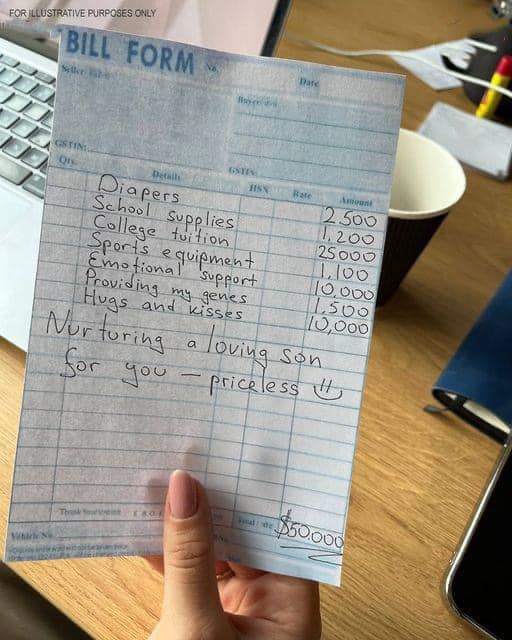 FOR ILLUSTRATIVE PURPOSES ONLY
BILL FORM No.
Date
GSTIN:
GSTIN:
Qty. Details HSN Rate Amount
Diapers 2,500
School supplies 1,200
College tuition 25000
Sports equipment 1,100
Emotional support 10,000
Providing my genes 1,500
Hugs and kisses 10,000
Nurturing a loving son
for you — priceless
Vehicle No. $50.000